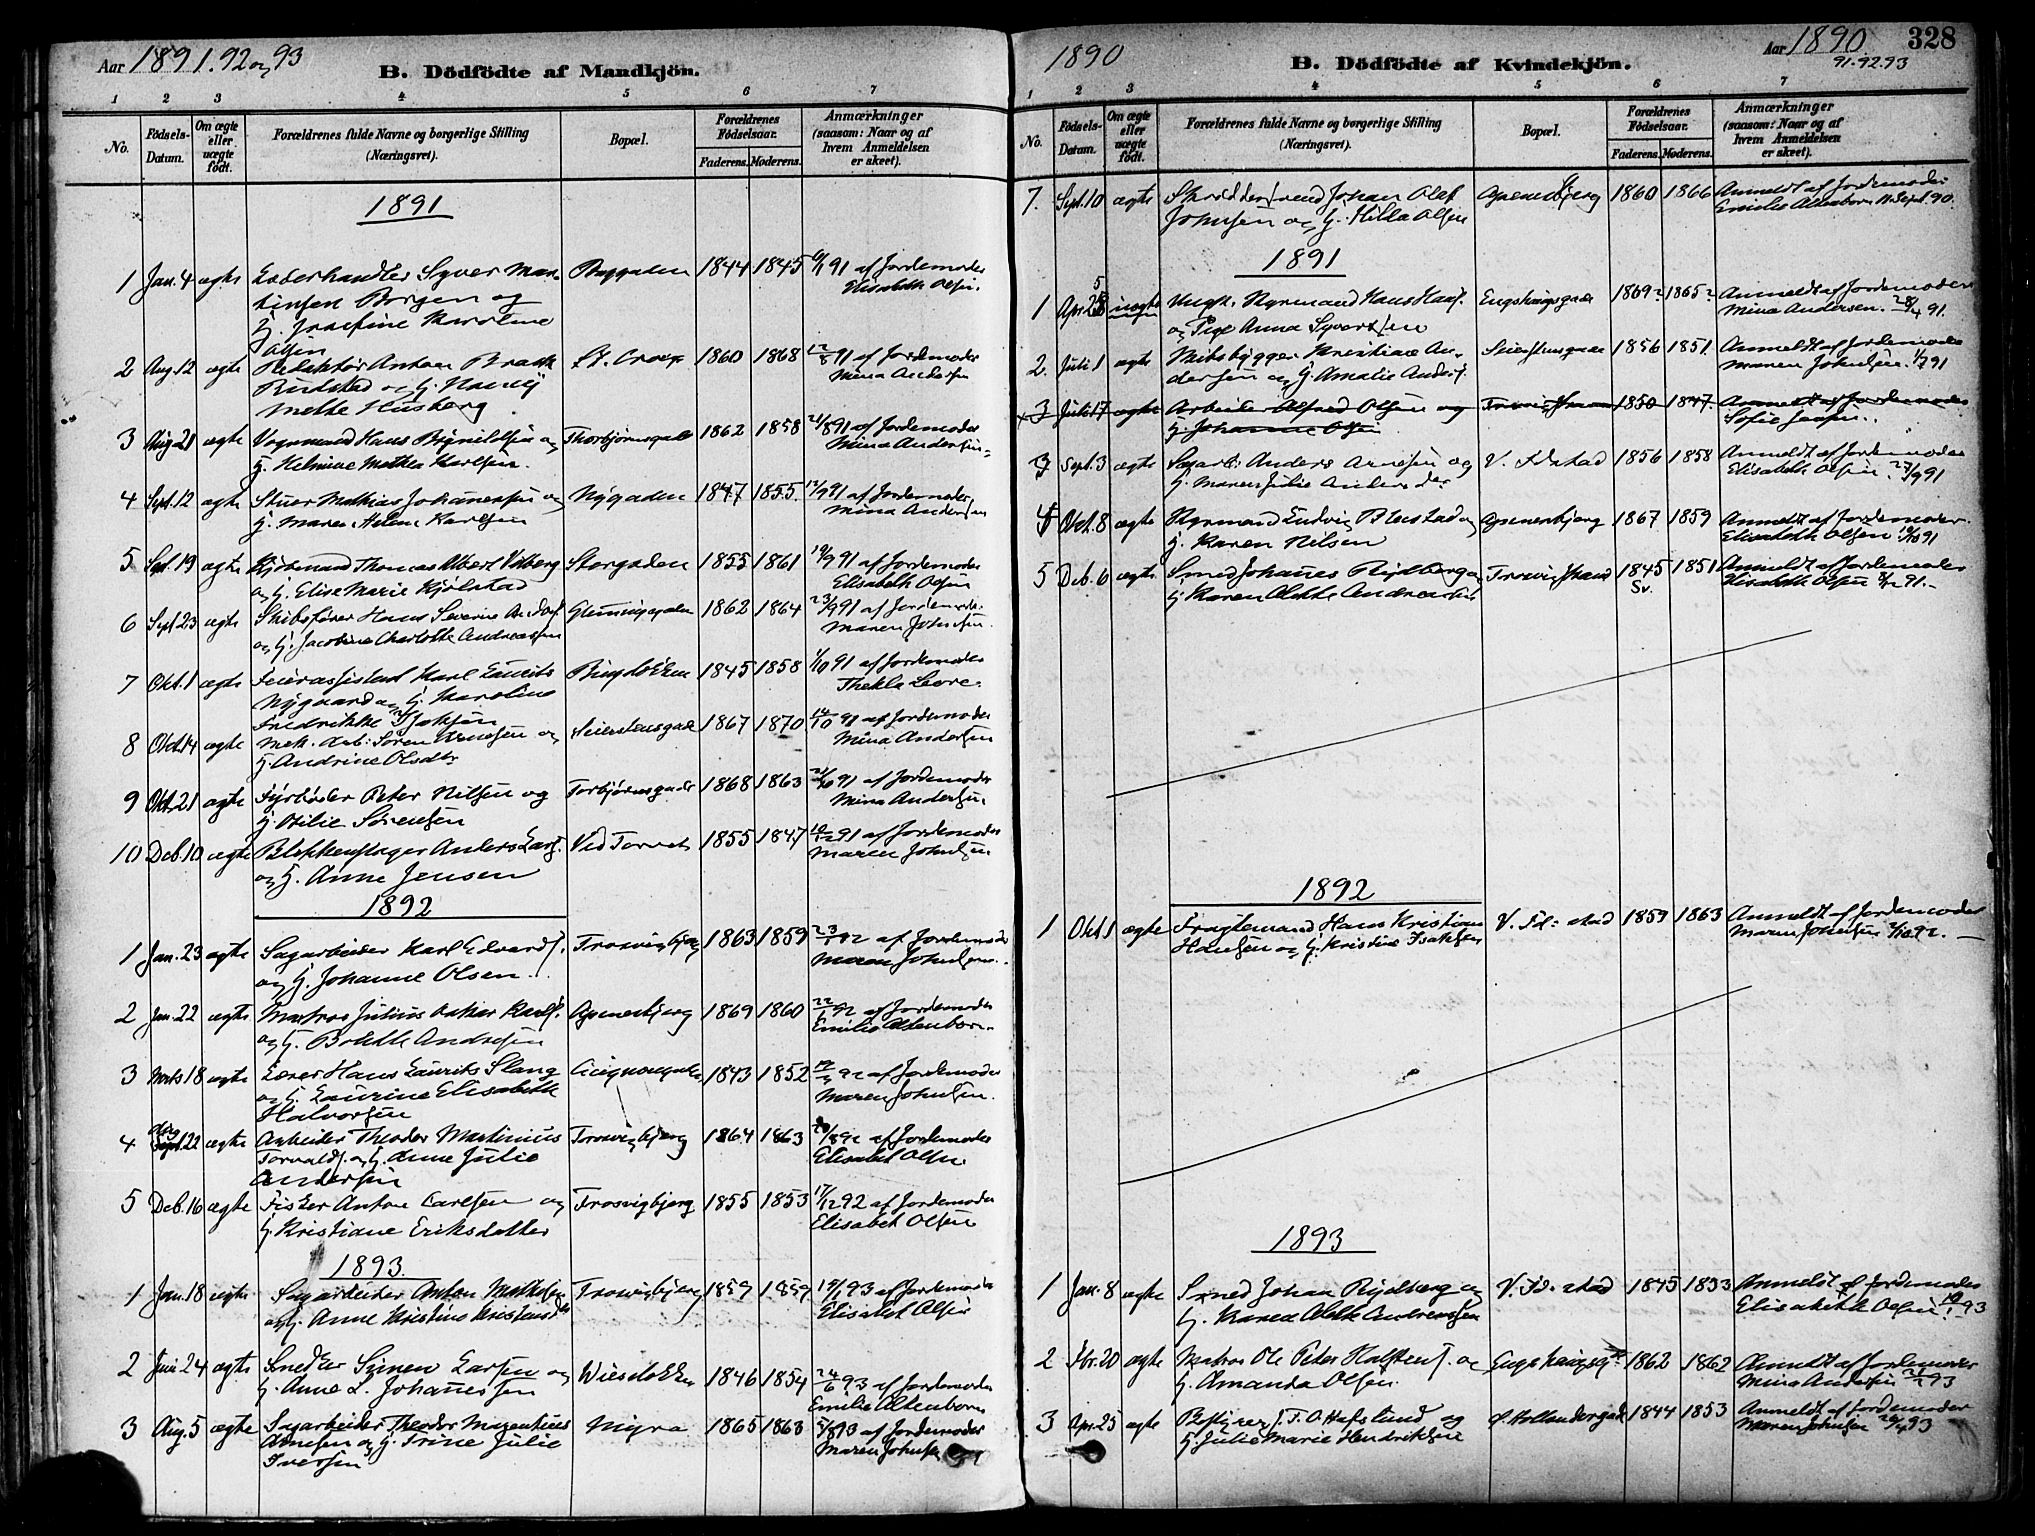 Aar 1891. 92 og 93
B. Dödfödte af Mandkjön.
1 2 3 4 5 6 7
No.
Födsels-Datum.
Om ægte eller uægte födt.
Forældrenes fulde Navne og borgerlige Stilling (Næringsvei).
Bopæl.
Forældrenes Födselsaar.
Faderens. Moderens.
Anmærkninger (saasom: Naar og af hvem Anmeldelsen er skeet).
1891
1 Jan. 4 ægte Syver Mar- 1844 1845 91 af Jordemoder
tinsen Borgen og Elisabeth Olsen.
H. Josefine Karoline
Olsen
2 Aug. 12 ægte Redaktør Anton 1860 1868 12/8 91 af Jordemoder
Rudstad og H. Mina Andersen
Mette Husberg
3 Aug. 21 ægte Vognmand Hans og Thorbjørnsgade 1862 1858 21/8 91 af Jordemoder
H. Helmine Mathea Karlsen. Mina Andersen.
4 Sept. 12 ægte Stuer Mathias Johannessen og Nygaden 1847 1855 12/9 91 af Jordemoder
H. Maren Helene Karlsen Mina Andersen
5 Sept. 19 ægte Kjøbmand Thomas Albert Storgaden 1855 1861 19/9 91 af Jordemoder
og H. Elise Marie Kjølstad Elisabeth Olsen
6 Sept. 23 ægte Skibsfører Hans Severin 1862 1864 23/9 91 af Jordemoder
og H. Jacobine Charlotte Andreassen Maren Johnsen.
7 Okt. 1 ægte Karl Laurits 1845 1858 1/10 91 af Jordemoder
Nygaard og H. Karoline Thekla
Fredrikke Isaksen
8 Okt. 14 ægte Mek. Arb. Søren Arnesen og 1867 1870 14/10 91 af Jordemoder
H. Andrine Olsdtr Mina Andersen
9 Okt. 21 ægte Fyrbøder Peter Nilsen og Torbjørnsgade 1868 1863 21/10 91 af Jordemoder
H. Otilie Sørensen Mina Andersen.
10 Deb. 10 ægte Blokkemager Anders Lars. Ved Torvet 1855 1847 10/12 91 af Jordemoder
og H. Anne Jensen Maren Johnsen
1892
1 Jan. 23 ægte Sagarbeider Karl Edvards. Trosvigbjerg 1863 1859 23/1 92 af Jordemoder
og H. Johanne Olsen. Maren Johnsen.
2 Jan. 22 ægte Matros Julius Oskar Karls. Apenesbjerg 1869 1860 22/1 92 af Jordemoder
og H. Andresen Emilie Altenborn.
3 Marts 18 ægte Lærer Hans Laurits Slang Cicignongaden 1843 1852 92 af Jordemoder
og H. Laurine Elisabeth Maren Johnsen.
Halvorsen
4 Aug 22 ægte Arbeider Theodor Martinius Trosvigbjerg 1864 1863 /8 92 af Jordemoder
Torvalds. og H. Anne Julie Elisabet Olsen
Andersen
5 Deb. 16 ægte Fisker Anton Carlsen og Trosvigbjerg 1855 1853 17/12 92 af Jordemoder
H. Kristiane Eriksdatter Elisabet Olsen
1893.
1 Jan. 18 ægte Sagarbeider Anton Trosvigbjerg 1859 1859 19/1 93 af Jordemoder
og H. Anne Kristine Kristiansdtr Elisabet Olsen
2 Juni 24 ægte Snedker Simen Larsen og 1846 1854 24/6 93 af Jordemoder
H. Anne L. Johannessen Emilie Altenborn
3 Aug. 5 ægte Sagarbeider Theodor Marentius Nygra 1865 1863 5/8 93 af Jordemoder
Arnesen og H. Trine Julie Maren Johnsen
Iversen
1890
B. Dödfödte af Kvindekjön.
Aar 1890
91. 92. 93
328
1 2 3 4 5 6 7
No.
Födsels-Datum.
Om ægte eller uægte födt.
Forældrenes fulde Navne og borgerlige Stilling (Næringsvei).
Bopæl.
Forældrenes Födselsaar.
Faderens. Moderens.
Anmærkninger (saasom: Naar og af hvem Anmeldelsen er skeet).
7. Sept. 10 ægte Skræddersvend Johan Olaf Apenesbjerg 1860 1866 Anmeldt af Jordemoder
Johnsen og H. Hilda Olsen Emilie Altenborn 11. Sept. 90.
1891
1 Apr. 25 uægte Ungk. Styrmand Hans Hans. 1869? 1865? Anmeldt af Jordemoder
og Pige Anna Syvertsen Mina Andersen. 28/4 91.
2. Juli 1 ægte Kristian An- 1856 1851 Anmeldt af Jordemoder
dersen og H. Amalie Anders. Maren Johnsen. 1/7 91
x 3 Juli 17 ægte Arbeider Alfred Olsen og 1850 1847 Anmeldt af Jordemoder
H. Johanne Olsen Sofie Jensen.
3 Sept. 3 ægte Sagarb. Anders Arnesen og V. Fdstad 1856 1858 Anmeldt af Jordemoder
H. Maren Julie Elisabeth Olsen 91
4 Okt. 8 ægte Styrmand Ludvig og Apenesbjerg 1867 1859 Anmeldt af Jordemoder.
H. Karen Nilsen Elisabeth Olsen 91
5 Deb. 6 ægte Smed Johannes Rydberg og 1845 1851 Anmeldt af Jordemoder
H. Karen Olette Andreassen Sv. Elisabeth Olsen 91.
1892
1 Okt. 1 ægte Fragtemand Hans Kristian V. Fd.stad 1859 1863 Anmeldt af Jordemoder
Hansen og H. Kristine Isaksen Maren Johnsen 1/10 92.
1893
1 Jan. 8 ægte Smed Johan Rydberg og V. Fd.stad 1845 1853 Anmeldt af Jordemoder
H. Karen Olette Andreassen Elisabeth Olsen 10/1 93
2 Fbr. 20 ægte Matros Ole Peter Halstens. og 1862 1862 Anmeldt af Jordemoder
H. Amanda Olsen. Mina Andersen 93
3 Apr. 25 ægte Bestyrer T. O. Hafslund og 1844 1853 Anmeldt af Jordemoder
H. Julie Marie Hendriksen Maren Johnsen 93